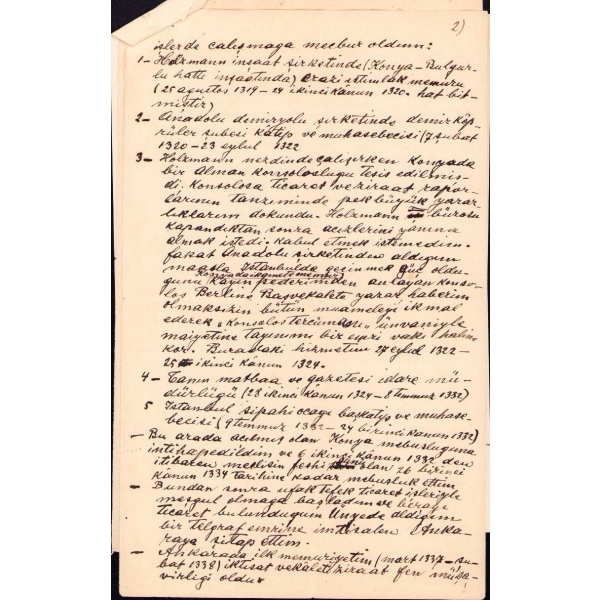 2)
işlerde çalışmaga mecbur oldum:
1 - Holzmann inşaat şirketinde (Konya - Bulgur-
lu hattı inşaatında) erazi istimlak memuru
(25 agustos 1319 - 24 ikinci kânun 1320. hat bit-
miştir)
2 - Anadolu demiryolu şirketinde demir köp-
rüler şubesi kâtip ve muhasebecisi (7 şubat
1320 - 23 eylul 1322
3 - Holzmann nezdinde çalışırken Konyada
bir Alman konsoloslugu tesis edilmiş-
di. Konsolosa ticaret ve ziraat rapor-
larının tanziminde pek büyük yarar-
lıklarım dokundu. Holzmann bürosu
kapandıktan sonra acizlerini yanına
almak istedi. Kabul etmek istemedim.
fakat Anadolu şirketinden aldıgım
maaşla Istanbulda geçinmek güç oldu-
gunu (Konyada ikamet memur) Kayın pederimden anlayan konso-
los Berline Başvekalete yazar haberim
olmaksızın bütün muameleyi ikmal
ederek "Konsolos tercümanı" ünvaniyle
maiyetine tayinimi bir emri vaki haline
kor. Buradaki hizmetim 27 eylul 1322 -
25 ikinci kânun 1324.
4 - Tanin matbaa ve gazetesi idare mü-
dürlügü (28 ikinci kânun 1324 - 8 temmuz 1332)
5 Istanbul sipahi ocagı başkatip ve muhase-
becisi (9 temmuz 1332 - 24 birinci kânun 1332)
- Bu arada açılmış olan Konya mebusluguna
intihap edildim ve 6 ikinci kânun 1332 den
itibaren meclisin feshi olan 26 birinci
kânun 1334 tarihine kadar mebusluk ettim
- Bundan sonra ufak tefek ticaret işleriyle
meşgul olmaga başladım ve berayı
ticaret bulundugum Ünyede aldıgım
bir telgraf emrine imtisalen Anka-
raya şitap ettim.
- Ankarada ilk memuriyetim (mart 1337 - şu-
bat 1338) iktisat vekaleti ziraat fen müşa-
virligi oldu.